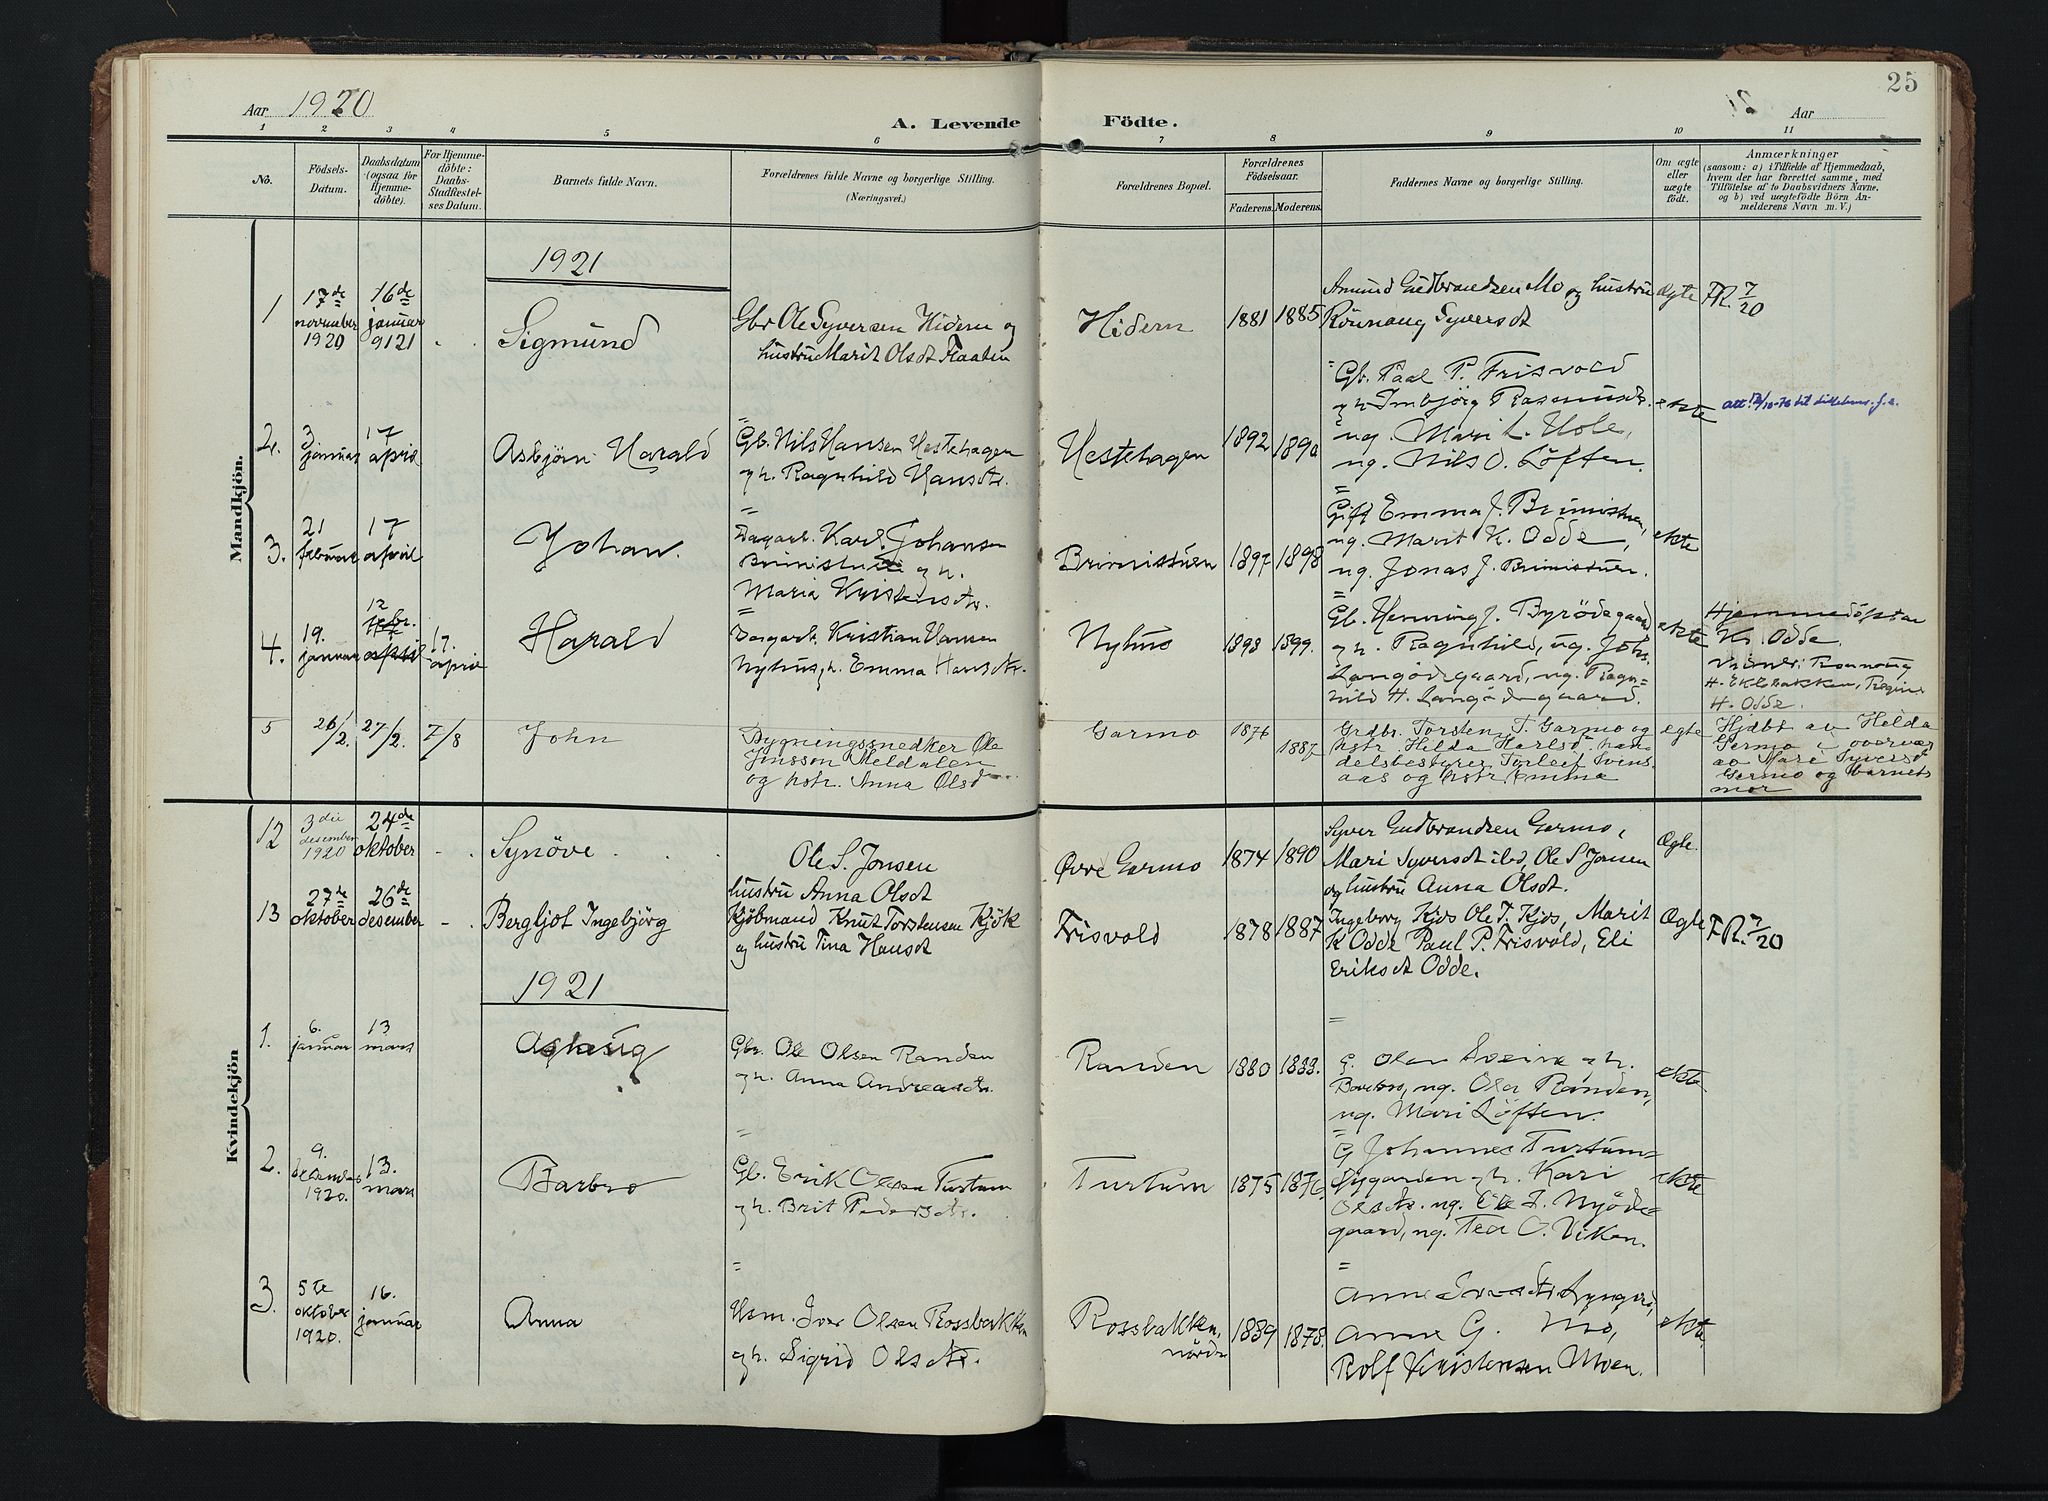 25
Aar 1920
A. Levende Födte.
21 Aar
1 2 3 4 5 6 7 8 9 10 11
No.
Födsels-Datum.
Daabsdatum (ogsaa for Hjemme-döbte).
For Hjemme-döbte: Daabs-Stadfæstel-ses Datum.
Barnets fulde Navn.
Forældrenes fulde Navne og borgerlige Stilling.
(Næringsvei.)
Forældrenes Bopæl.
Forældrenes Födselsaar.
Faderens. Moderens.
Faddernes Navne og borgerlige Stilling.
Om ægte eller uægte födt.
Anmærkninger
(saasom: a) i Tilfælde af Hjemmedaab,
hvem der har forrettet samme, med
Tilföielse af to Daabsvidners Navne,
og b) ved uægtefödte Börn An-
melderens Navn m. V.)
Mandkjön.
1921
1
17de november 1920
16de januar 9121
Sigmund
Gbr Ole Syversen Hidem og
hustru Marit Olsdt Flaaten
Hidern
1881 1885
Amund Gudbrandsen Mo og hustru
Rönnaug Syversdt
Ægte
FR. 7/20
2.
3 januar
17 april
Asbjörn Harald
Gb. Nils Hansen Hestehagen
og h. Ragnhild Hansdtr.
Hestehagen
1892 1890
Gb. Paal P. Frisvold
og h. Imbjörg Rasmusdt.
ug. Mari L. Hole,
ug. Nils O. Löften.
ekte
3.
21 februar
17 april
Johan.
Dagarb. Karl Johansen
Brimistuen og h.
Maria Kristensdtr.
Brimistuen
1897 1898
Gift Emma J. Brimistuen,
ug. Marit K. Odde,
ug. Jonas J. Brimistuen.
ekte
4.
19. januar
12 febr.
17 april
17. april
Harald
Dagarb. Kristian Hansen
Nyhus, h. Emma Hansdtr.
Nyhus
1898 1899.
Gb. Henning J. Byrödegaard
og h. Ragnhild, ug. Johs.
Langödegaard, ug. Ragn-
hild H. Langödegaard.
ekte
Hjemmedöpt av
K. Odde.
Vidner: Rönnaug
H. Eklebakken, Regine
H. Odde.
5
26/2.
27/2.
7/8
John
Bygningssnedker Ole
Jonsson Meldalen
og hstr. Anna Olsd
Garmo
1876 1887
Grdbr. Torsten T. Garmo og
hstr. Helda Karlsd. han-
delsbestyrer Torleif Svens-
aas og hstr. Emma
egte
Hjdbt av Helda
Garmo i overvær
av Mari Syversd
Garmo og barnets
mor
Kvindekjön
12
3die desember 1920
24de oktober
Synöve
Ole S. Jonsen
hustru Anna Olsdt
Övre Garmo
1874 1890
Syver Gudbrandsen Garmo,
Mari Syversdt ibd, Ole S Jonsen
og hustru Anna Olsdt.
Ægte.
13
27de oktober
26de desember
Bergljot Ingebjörg
Kjöbmand Knut Torstensen Kjök
og hustru Tina Hansdt
Frisvold
1878 1887
Ingeborg Kjos Ole T. Kjos, Marit
K Odde Paul P. Frisvold, Eli
Eriksdt Odde.
Ægte
FR. 7/20
1921
1.
6. januar
13 mars
Aslaug
Gbr. Ole Olsen Randen
og h. Anna Andreasdtr.
Randen
1880 1888.
G. Olav Sveine og h.
ug. Ola Randen,
ug. Mari Löften.
ekte.
2.
9. desember 1920.
13. mars
Barbro
Gb. Erik Olsen Turtum
og h. Brit Pedersdtr.
Turtum
1875 1876,
G Johannes Turtum-
Nygarden og h. Kari
Olsdtr. ug. Ole J. Nyöde-
gaard, ug. Tea O. Viken.
ekte
3.
5te oktober 1920.
16. januar
Anna
Hsm. Iver Olsen Rossbakken
og h. Sigrid Olsdtr.
Rossbakken, nördre
1889 1878.
Anne
Anne G. Mo,
Rolf Kristensen Moen.
ekte.